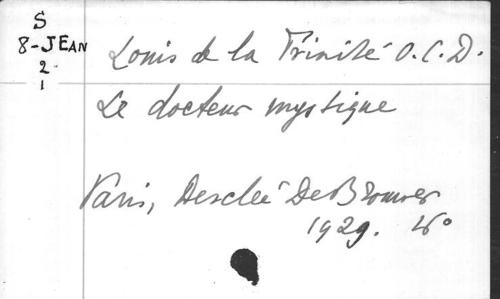 S
8-JEAN
2
1
Louis de la Trinité O.C.D.
Le docteur mystique
Paris, Desclée De Brouwer
1929.